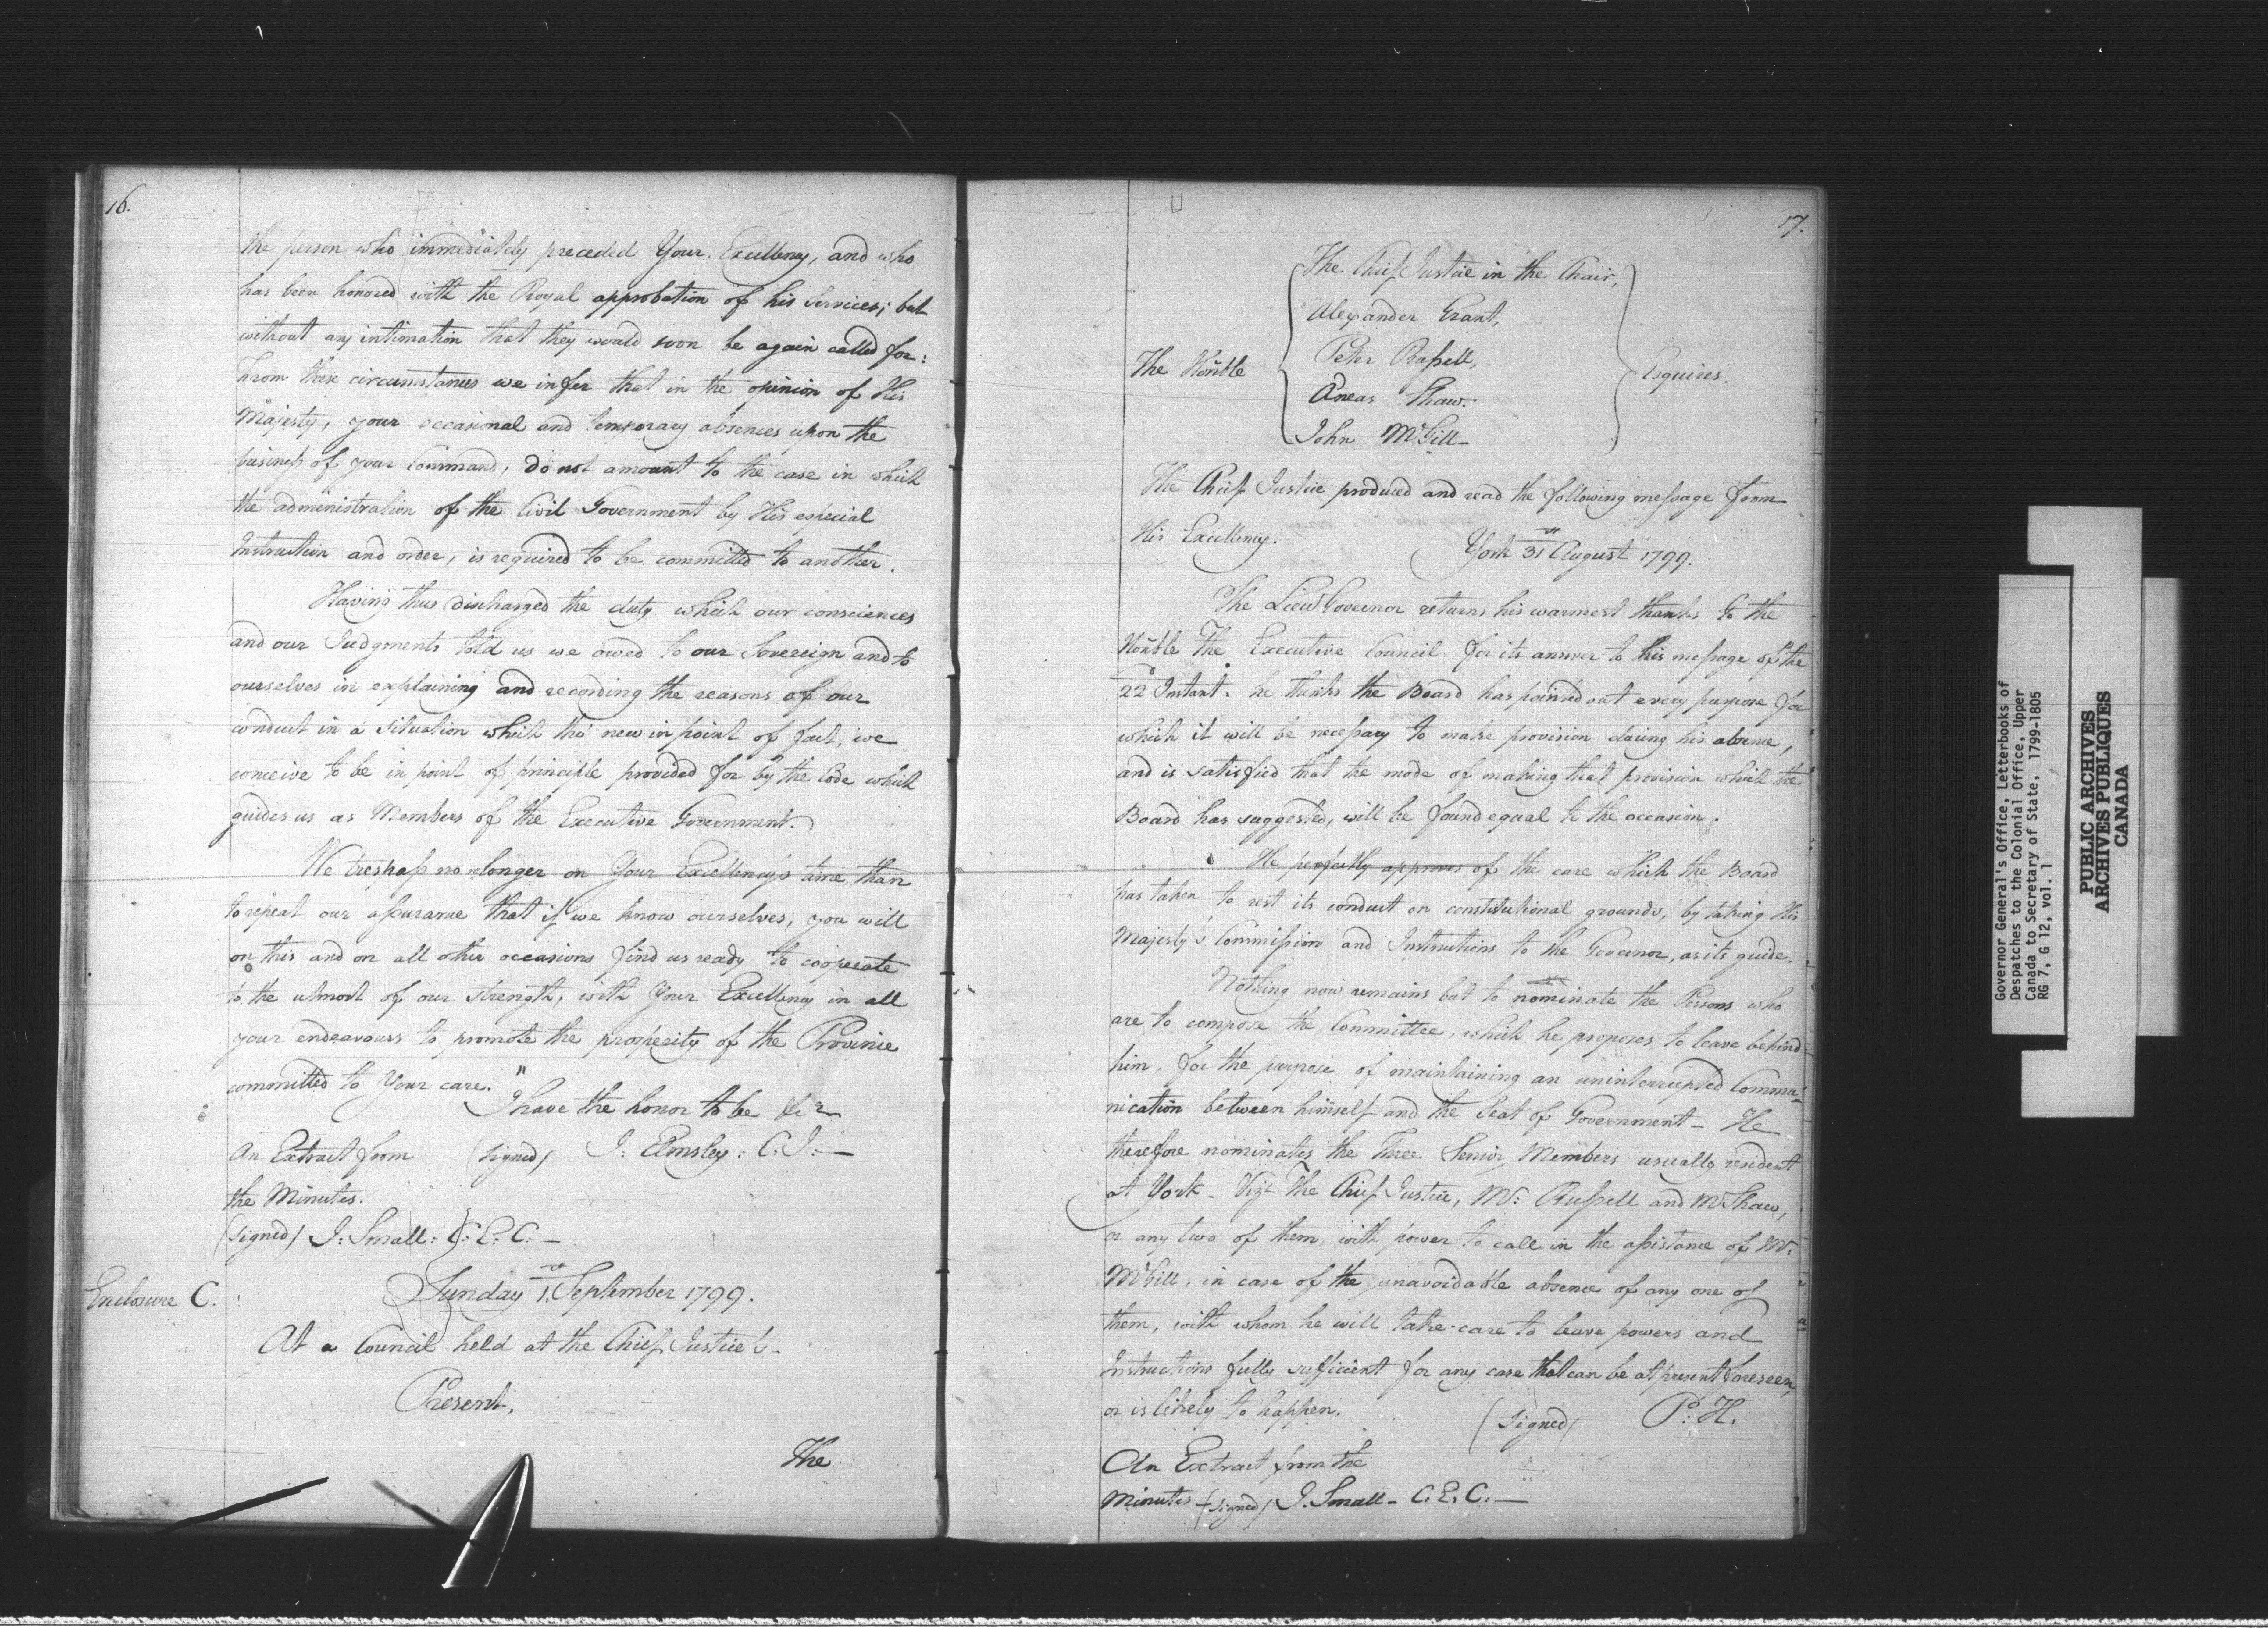 16.
the person who immediately preceded Your Excellency, and who
has been honored with the Royal approbation of his Services; but
without any intimation that they would soon be again called for:
From these circumstances we infer that in the opinion of His
Majesty, your occasional and temporary absences upon the
business of your Command, do not amount to the case in which
the administration of the Civil Government by His especial
Instruction and order, is required to be committed to another.
Having thus discharged the duty which our consciences
and our Judgments told us we owed to our Sovereign and to
ourselves in explaining and recording the reasons of our
conduct in a situation which tho' new in point of fact, we
conceive to be in point of principle provided for by the Code which
guides us as Members of the Executive Government.
We trespass no longer on Your Excellency's time, than
to repeat our assurance that if we know ourselves, you will
on this and on all other occasions find us ready to cooperate
to the utmost of our strength, with Your Excellency in all
your endeavours to promote the prosperity of the Province
committed to Your care."
I have the honor to be &c
An Extract from (signed) J: Elmsley: C. J:—
the Minutes.
(signed) J: Small: C: E: C:—
Enclosure C.
Sunday 1st September 1799.
At a Council held at the Chief Justice's—
Present.
The
17.
The Chief Justice in the Chair,
Alexander Grant,
The Honble Peter Russell, Esquires.
Æneas Shaw—
John McGill—
The Chief Justice produced and read the following message from
His Excellency.
York 31st August 1799.
The Lieut Governor returns his warmest thanks to the
Honble The Executive Council for its answer to his message of the
22d Instant. he thinks the Board has pointed out every purpose for
which it will be necessary to make provision during his absence,
and is satisfied that the mode of making that provision which the
Board has suggested, will be found equal to the occasion.
He perfectly approves of the care which the Board
has taken to rest its conduct on constitutional grounds, by taking His
Majesty's Commission and Instructions to the Governor, as its guide.
Nothing now remains but to nominate the Persons who
are to compose the Committee, which he proposes to leave behind
him, for the purpose of maintaining an uninterrupted Commu-
nication between himself and the Seat of Government— He
therefore nominates the Three Senior Members usually resident
at York— Vizt The Chief Justice, Mr: Russell and Mr Shaw,
or any two of them, with power to call in the assistance of Mr:
McGill, in case of the unavoidable absence of any one of
them, with whom he will take care to leave powers and
Instructions fully sufficient for any case that can be at present foreseen,
or is likely to happen. (signed) P: H.
An Extract from the
Minutes (signed) J. Small— C. E. C.—
Governor General's Office, Letterbooks of
Despatches to the Colonial Office, Upper
Canada to Secretary of State, 1799-1805
RG 7, G 12, vol. 1
PUBLIC ARCHIVES
ARCHIVES PUBLIQUES
CANADA